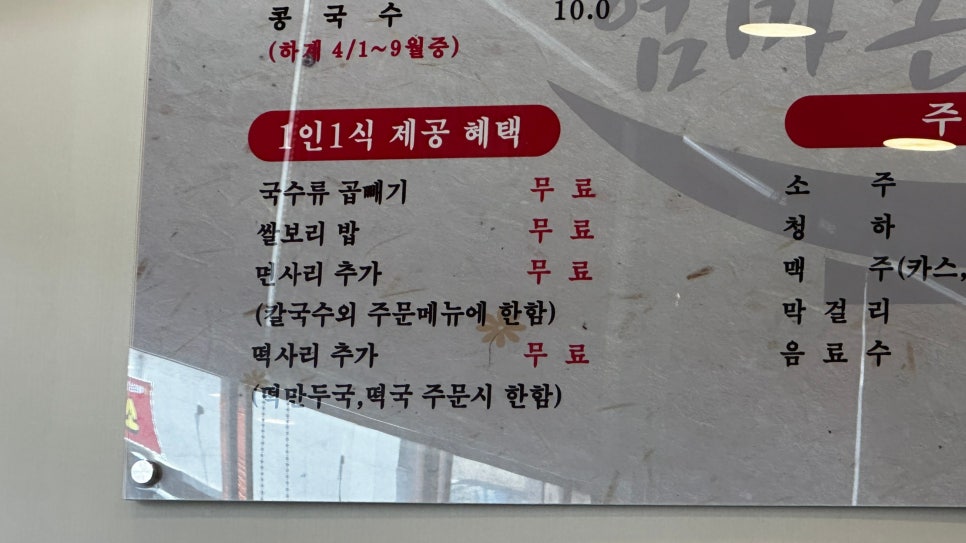 콩 국 수 10.0
(하계 4/1~9월중)
1인1식 제공 혜택
국수류 곱빼기 무 료
쌀보리 밥 무 료
면사리 추가 무 료
(칼국수외 주문메뉴에 한함)
떡사리 추가 무 료
(떡만두국,떡국 주문시 한함)
주
소 주
청 하
맥 주(카스,
막 걸 리
음 료 수